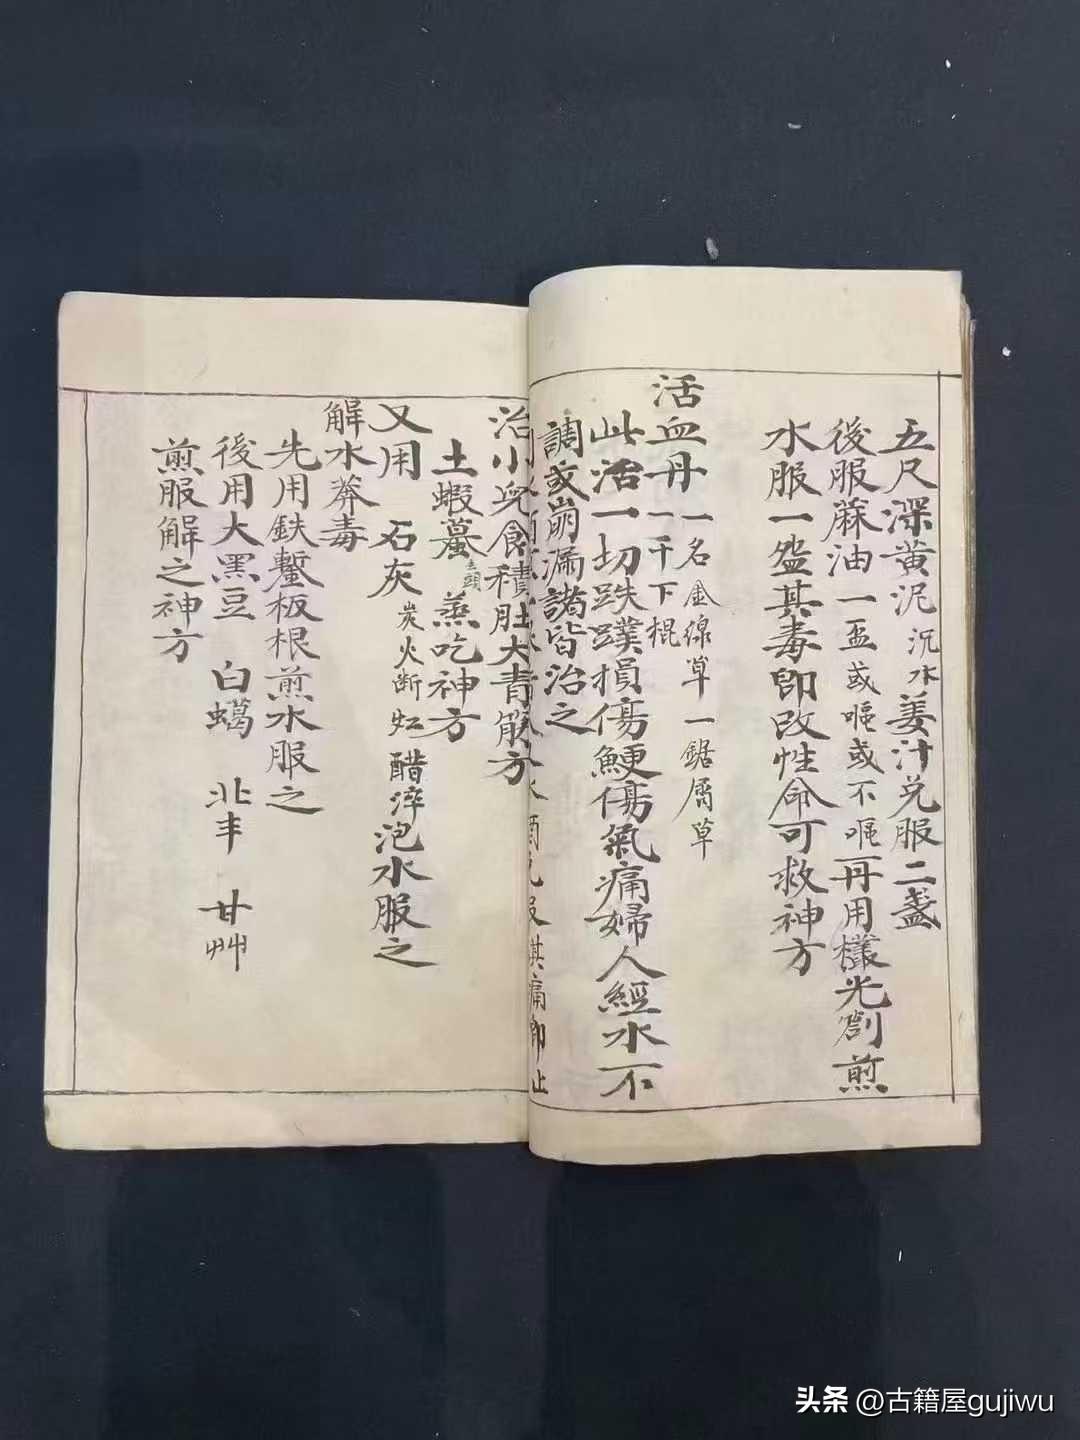 五尺深黄泥沉水姜汁兑服二盏
後服蔴油一盃或嘔或不嘔再用樣光劄煎
水服一盌其毒即改性命可救神方
活血丹一名金線草一鋸屑草
一千下棍
此活一切跌蹼損傷鯁傷氣痛婦人經水不
調或崩漏諸皆治之
酒兑服其痛即止
治小兒食積肚大青筋方
土蝦蟇去頭蒸吃神方
又用 石灰炭火断红醋淬泡水服之
解水莽毒
先用鉄鏨板根煎水服之
後用大黑豆 白蠍 甘艸
煎服解之神方
头条 @古籍屋gujiwu